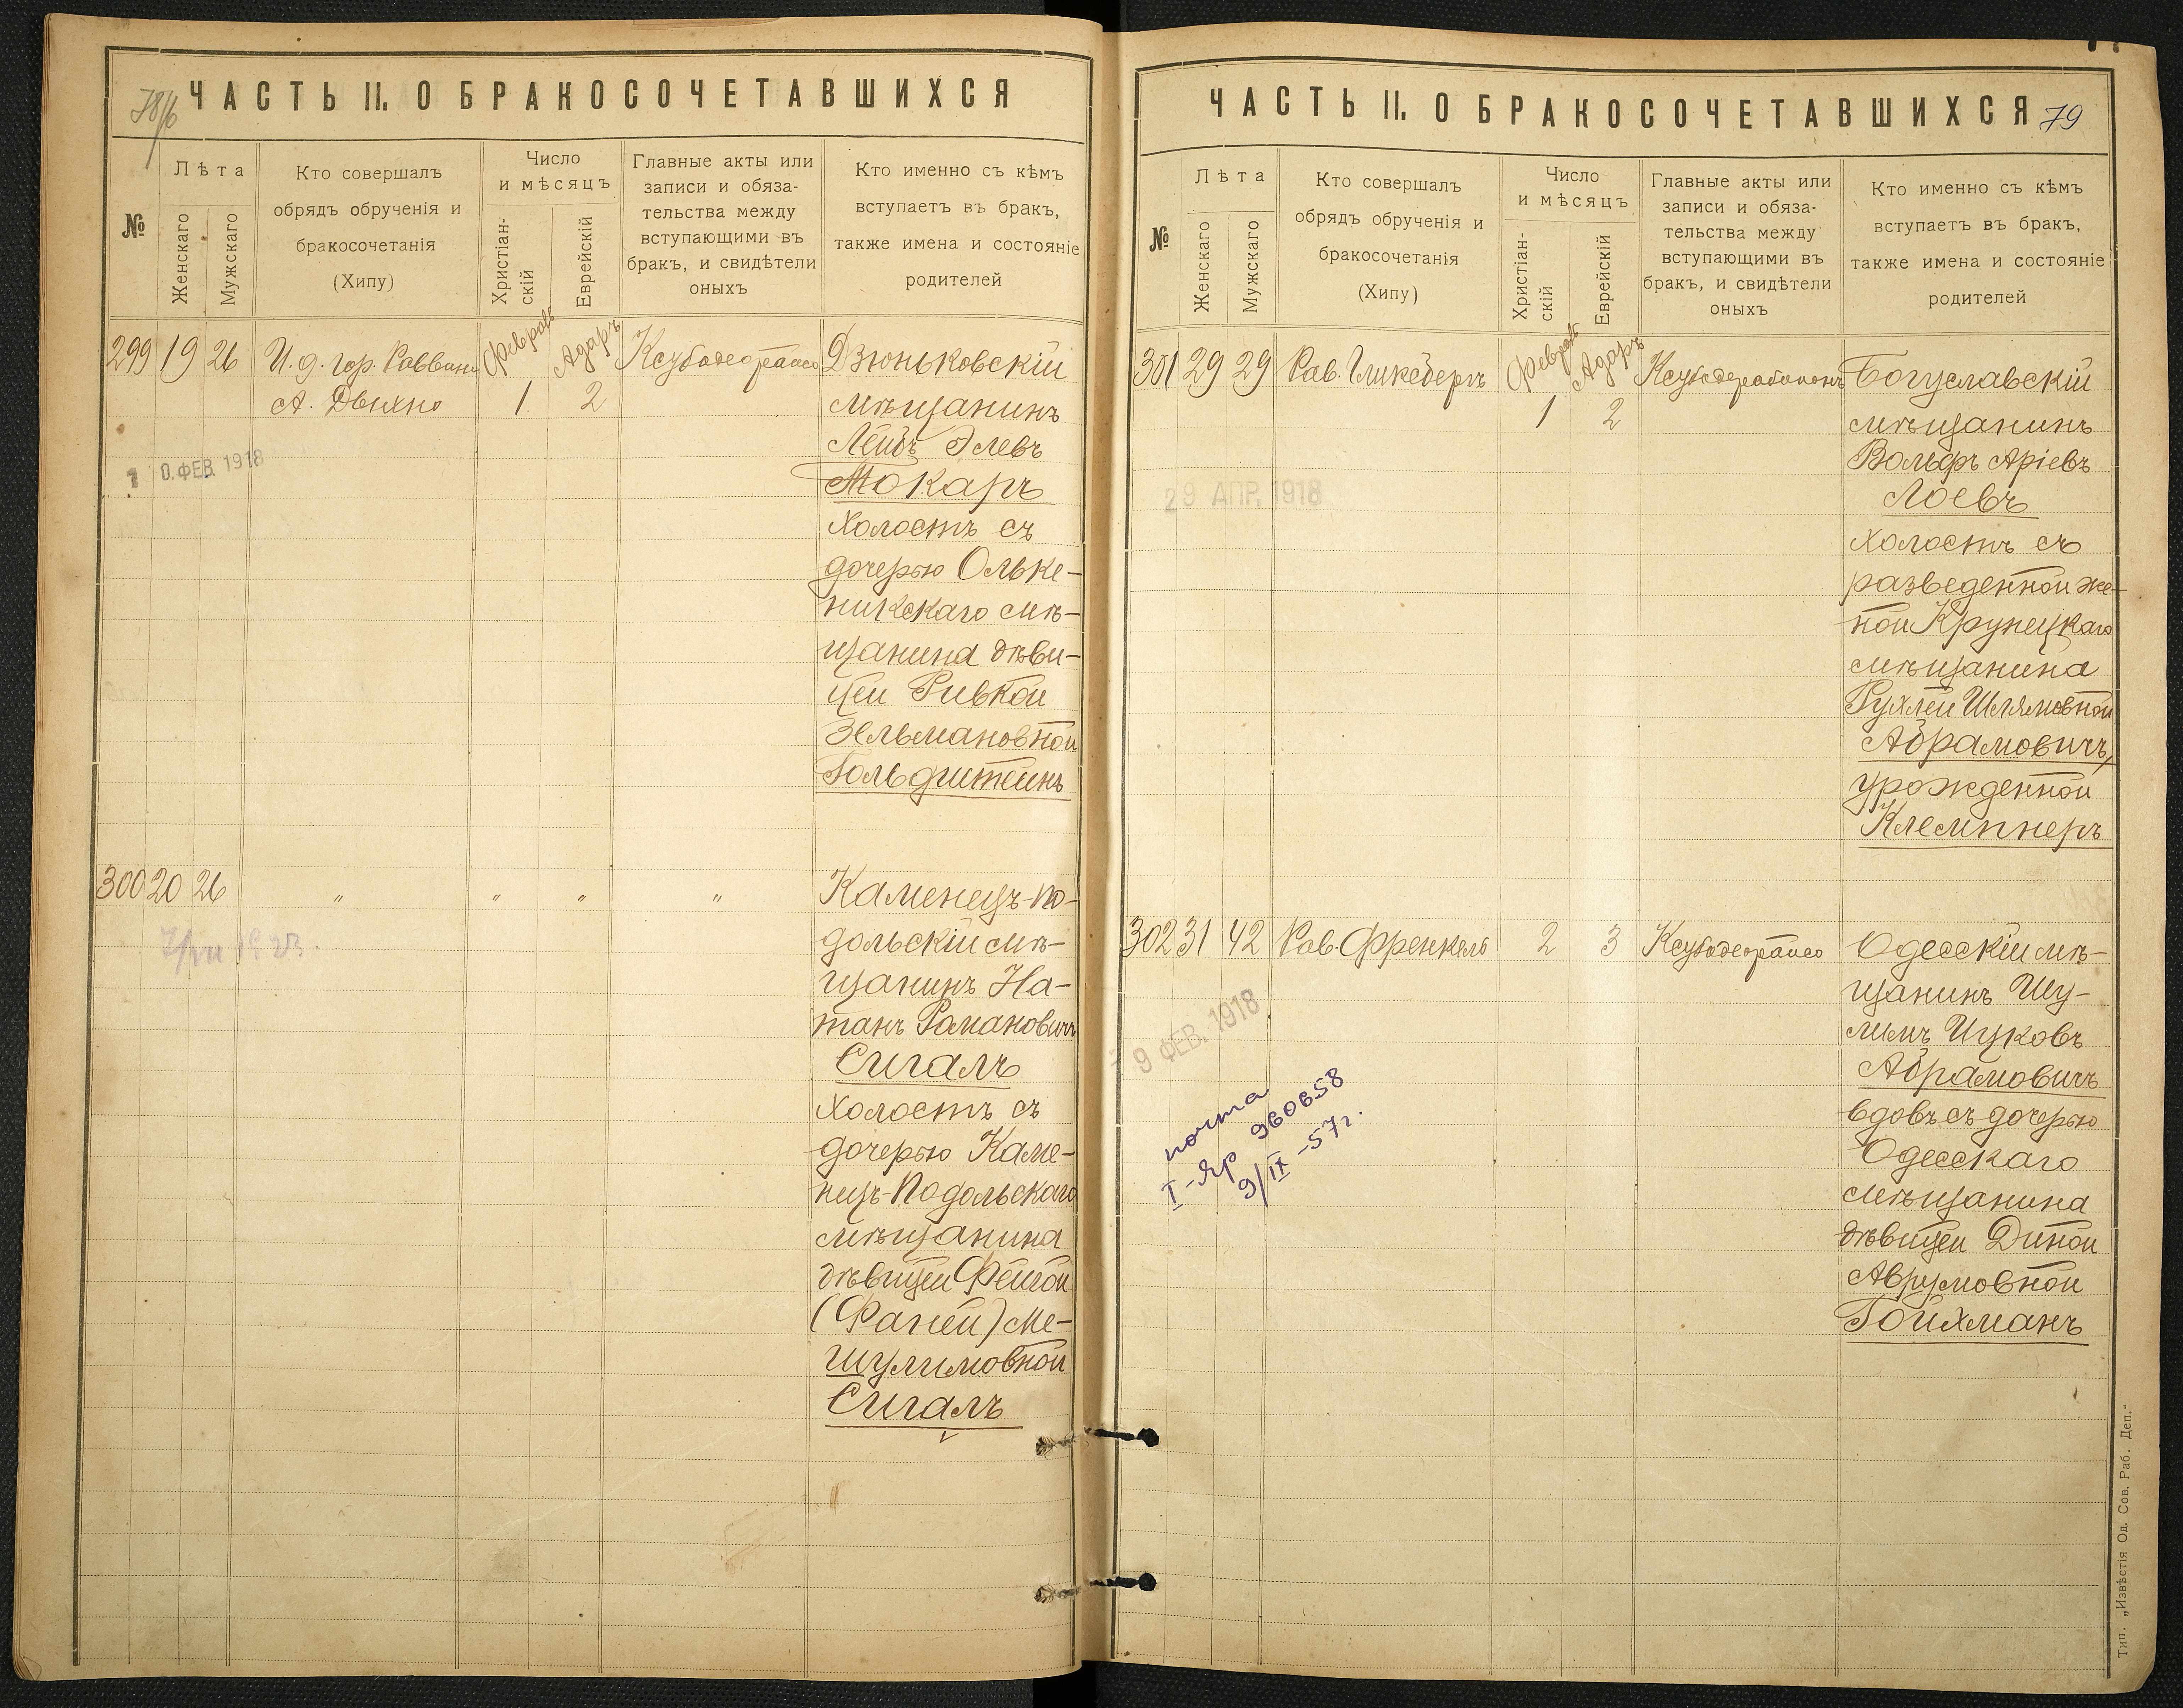 78/б
ЧАСТЬ II. О БРАКОСОЧЕТАВШИХСЯ
№
Лѣта
Женскаго
Мужскаго
Кто совершалъ
обрядъ обрученія и
бракосочетанія
(Хипу)
Число
и мѣсяцъ
Христіан-
скій
Еврейскій
Главные акты или
записи и обяза-
тельства между
вступающими въ
бракъ, и свидѣтели
оныхъ
Кто именно съ кѣмъ
вступаетъ въ бракъ,
также имена и состояніе
родителей
299 19 26 И. д. гор. Раввина Адаръ
А. Двихно 1 2
Дзюньковскій
мѣщанинъ
Лейбъ Элевъ
Токарь
холостъ съ
дочерью Ольке-
никскаго мѣ-
щанина дѣви-
цей Ривкой
Зельмановной
Гольдштейнъ
1 0. ФЕВ. 1918
300 20 26 " " " "
Каменецъ-По-
дольскій мѣ-
щанинъ На-
танъ Романовичъ
Сигалъ
холостъ съ
дочерью Каме-
нецъ-Подольскаго
мѣщанина
дѣвицей Фейгой
(Фаней) Ме-
шулимовной
Сигалъ
ЧАСТЬ II. О БРАКОСОЧЕТАВШИХСЯ
79
№
Лѣта
Женскаго
Мужскаго
Кто совершалъ
обрядъ обрученія и
бракосочетанія
(Хипу)
Число
и мѣсяцъ
Христіан-
скій
Еврейскій
Главные акты или
записи и обяза-
тельства между
вступающими въ
бракъ, и свидѣтели
оныхъ
Кто именно съ кѣмъ
вступаетъ въ бракъ,
также имена и состояніе
родителей
301 29 29 Рав. Гликсбергъ Адаръ
1 2
Богуславскій
мѣщанинъ
Вольфъ Аріевъ
Лоевъ
холостъ съ
разведенной же-
ной Крупецкаго
мѣщанина
Рухлей Шлямовной
Абрамовичъ,
урожденной
Клемпнеръ
29 АПР. 1918
302 31 42 Рав. Френкель 2 3
Одесскій мѣ-
щанинъ Шу-
лимъ Ицковъ
Абрамовичъ
вдовъ съ дочерью
Одесскаго
мѣщанина
дѣвицей Диной
Аврумовной
Гойхманъ
9 ФЕВ. 1918
почта
I-яр 960658
9/IX-57г.
Тип. „Извѣстія Од. Сов. Раб. Деп.“